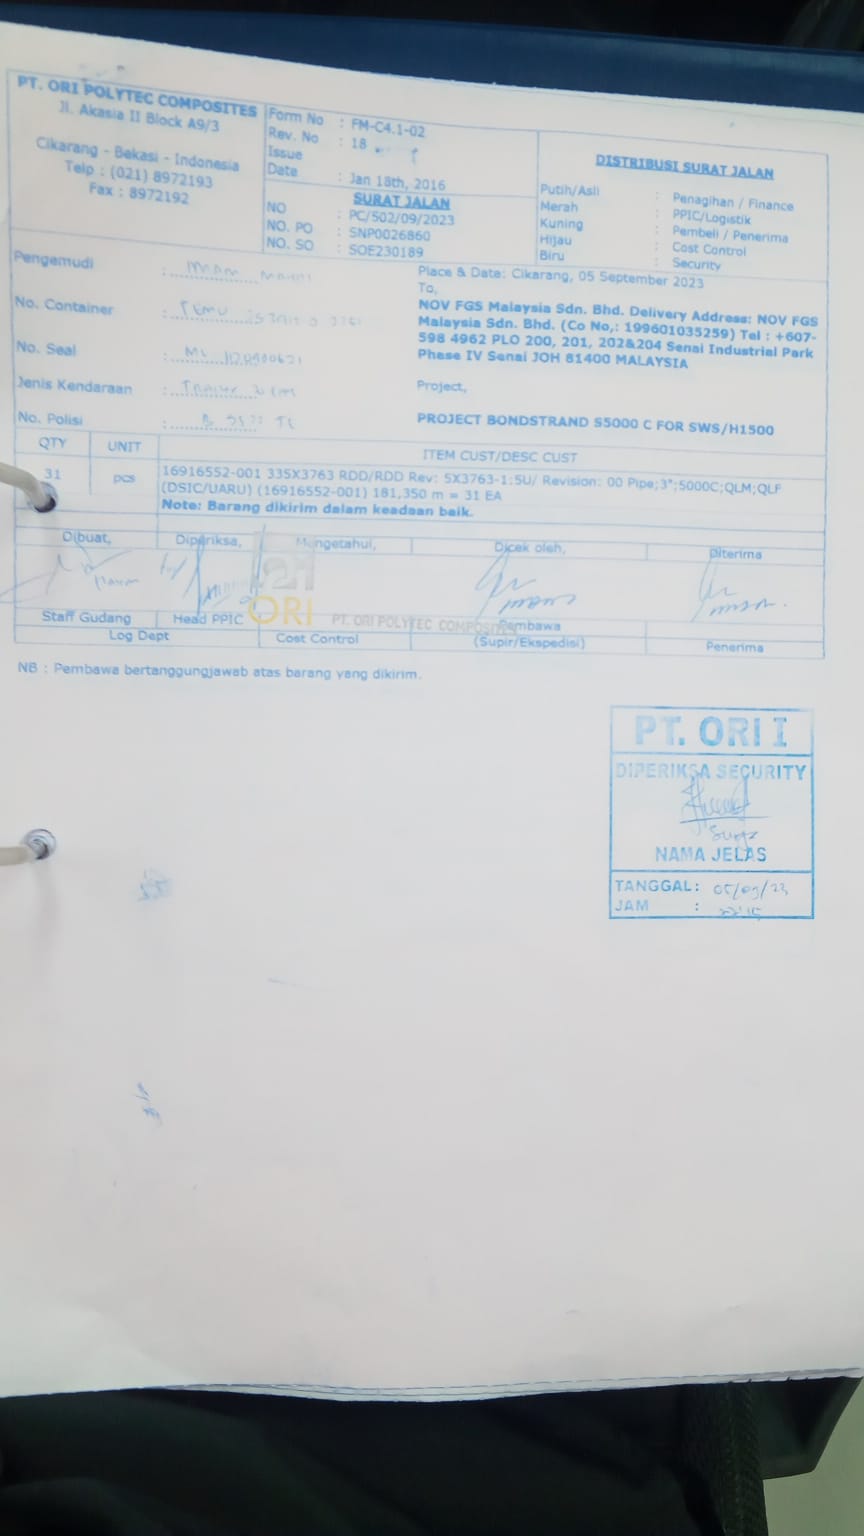 PT. ORI POLYTEC COMPOSITES
Jl. Akasia II Block A9/3
Cikarang - Bekasi - Indonesia
Telp : (021) 8972193
Fax : 8972192
Form No : FM-C4.1-02
Rev. No : 18
Issue
Date : Jan 18th, 2016
SURAT JALAN
NO : PC/502/09/2023
NO. PO : SNP0026860
NO. SO : SOE230189
DISTRIBUSI SURAT JALAN
Putih/Asli : Penagihan / Finance
Merah : PPIC/Logistik
Kuning : Pembeli / Penerima
Hijau : Cost Control
Biru : Security
Pengemudi :
No. Container :
No. Seal :
Jenis Kendaraan :
No. Polisi :
Place & Date: Cikarang, 05 September 2023
To,
NOV FGS Malaysia Sdn. Bhd. Delivery Address: NOV FGS
Malaysia Sdn. Bhd. (Co No,: 199601035259) Tel : +607-
598 4962 PLO 200, 201, 202&204 Senai Industrial Park
Phase IV Senai JOH 81400 MALAYSIA
Project,
PROJECT BONDSTRAND S5000 C FOR SWS/H1500
QTY UNIT ITEM CUST/DESC CUST
31 pcs 16916552-001 335X3763 RDD/RDD Rev: 5X3763-1:5U/ Revision: 00 Pipe;3";5000C;QLM;QLF
(DSIC/UARU) (16916552-001) 181,350 m = 31 EA
Note: Barang dikirim dalam keadaan baik.
Dibuat, Diperiksa, Mengetahui, Dicek oleh, Diterima
ORI PT. ORI POLYTEC COMPOSITES
Staff Gudang Head PPIC Pembawa
Log Dept Cost Control (Supir/Ekspedisi) Penerima
NB : Pembawa bertanggungjawab atas barang yang dikirim.
PT. ORI I
DIPERIKSA SECURITY
NAMA JELAS
TANGGAL: 05/09/23
JAM :